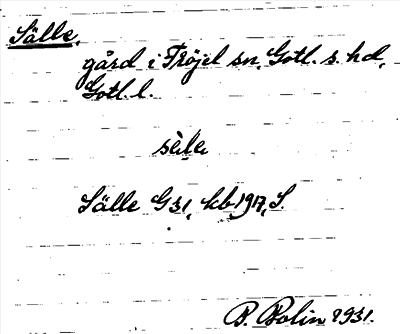 Sälle,
gård i Fröjel sn, Gotl. s. hd,
Gotl. l.
Sälle G31, kb 1917, S.
B. Bolin 1931.